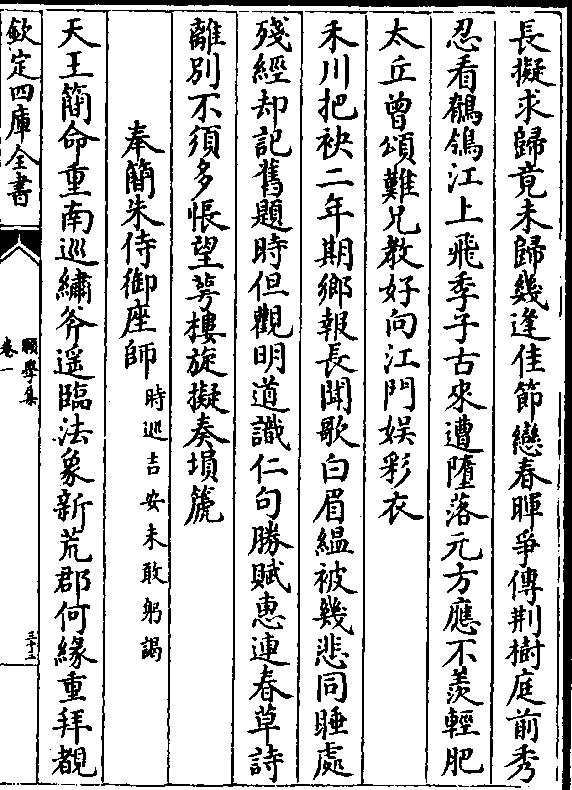 長擬求歸竟未歸幾逢佳節戀春暉爭傳荆樹庭前秀
忍看鶺鴒江上飛季子古來遭墮落元方應不羨輕肥
太丘曾頌難兄教好向江門娱彩衣
禾川把袂二年期鄉報長聞歌白眉緼被幾悲同睡處
殘經却記舊題時但觀明道識仁句勝賦恵連春草詩
離别不須多悵望萼樓旋擬奏塤箎
奉簡朱侍御座師時巡吉安未敢躬謁
天王簡命重南巡繡斧遥臨法象新荒郡何縁重拜覩
欽定四庫全書
願學集
卷一
三十三